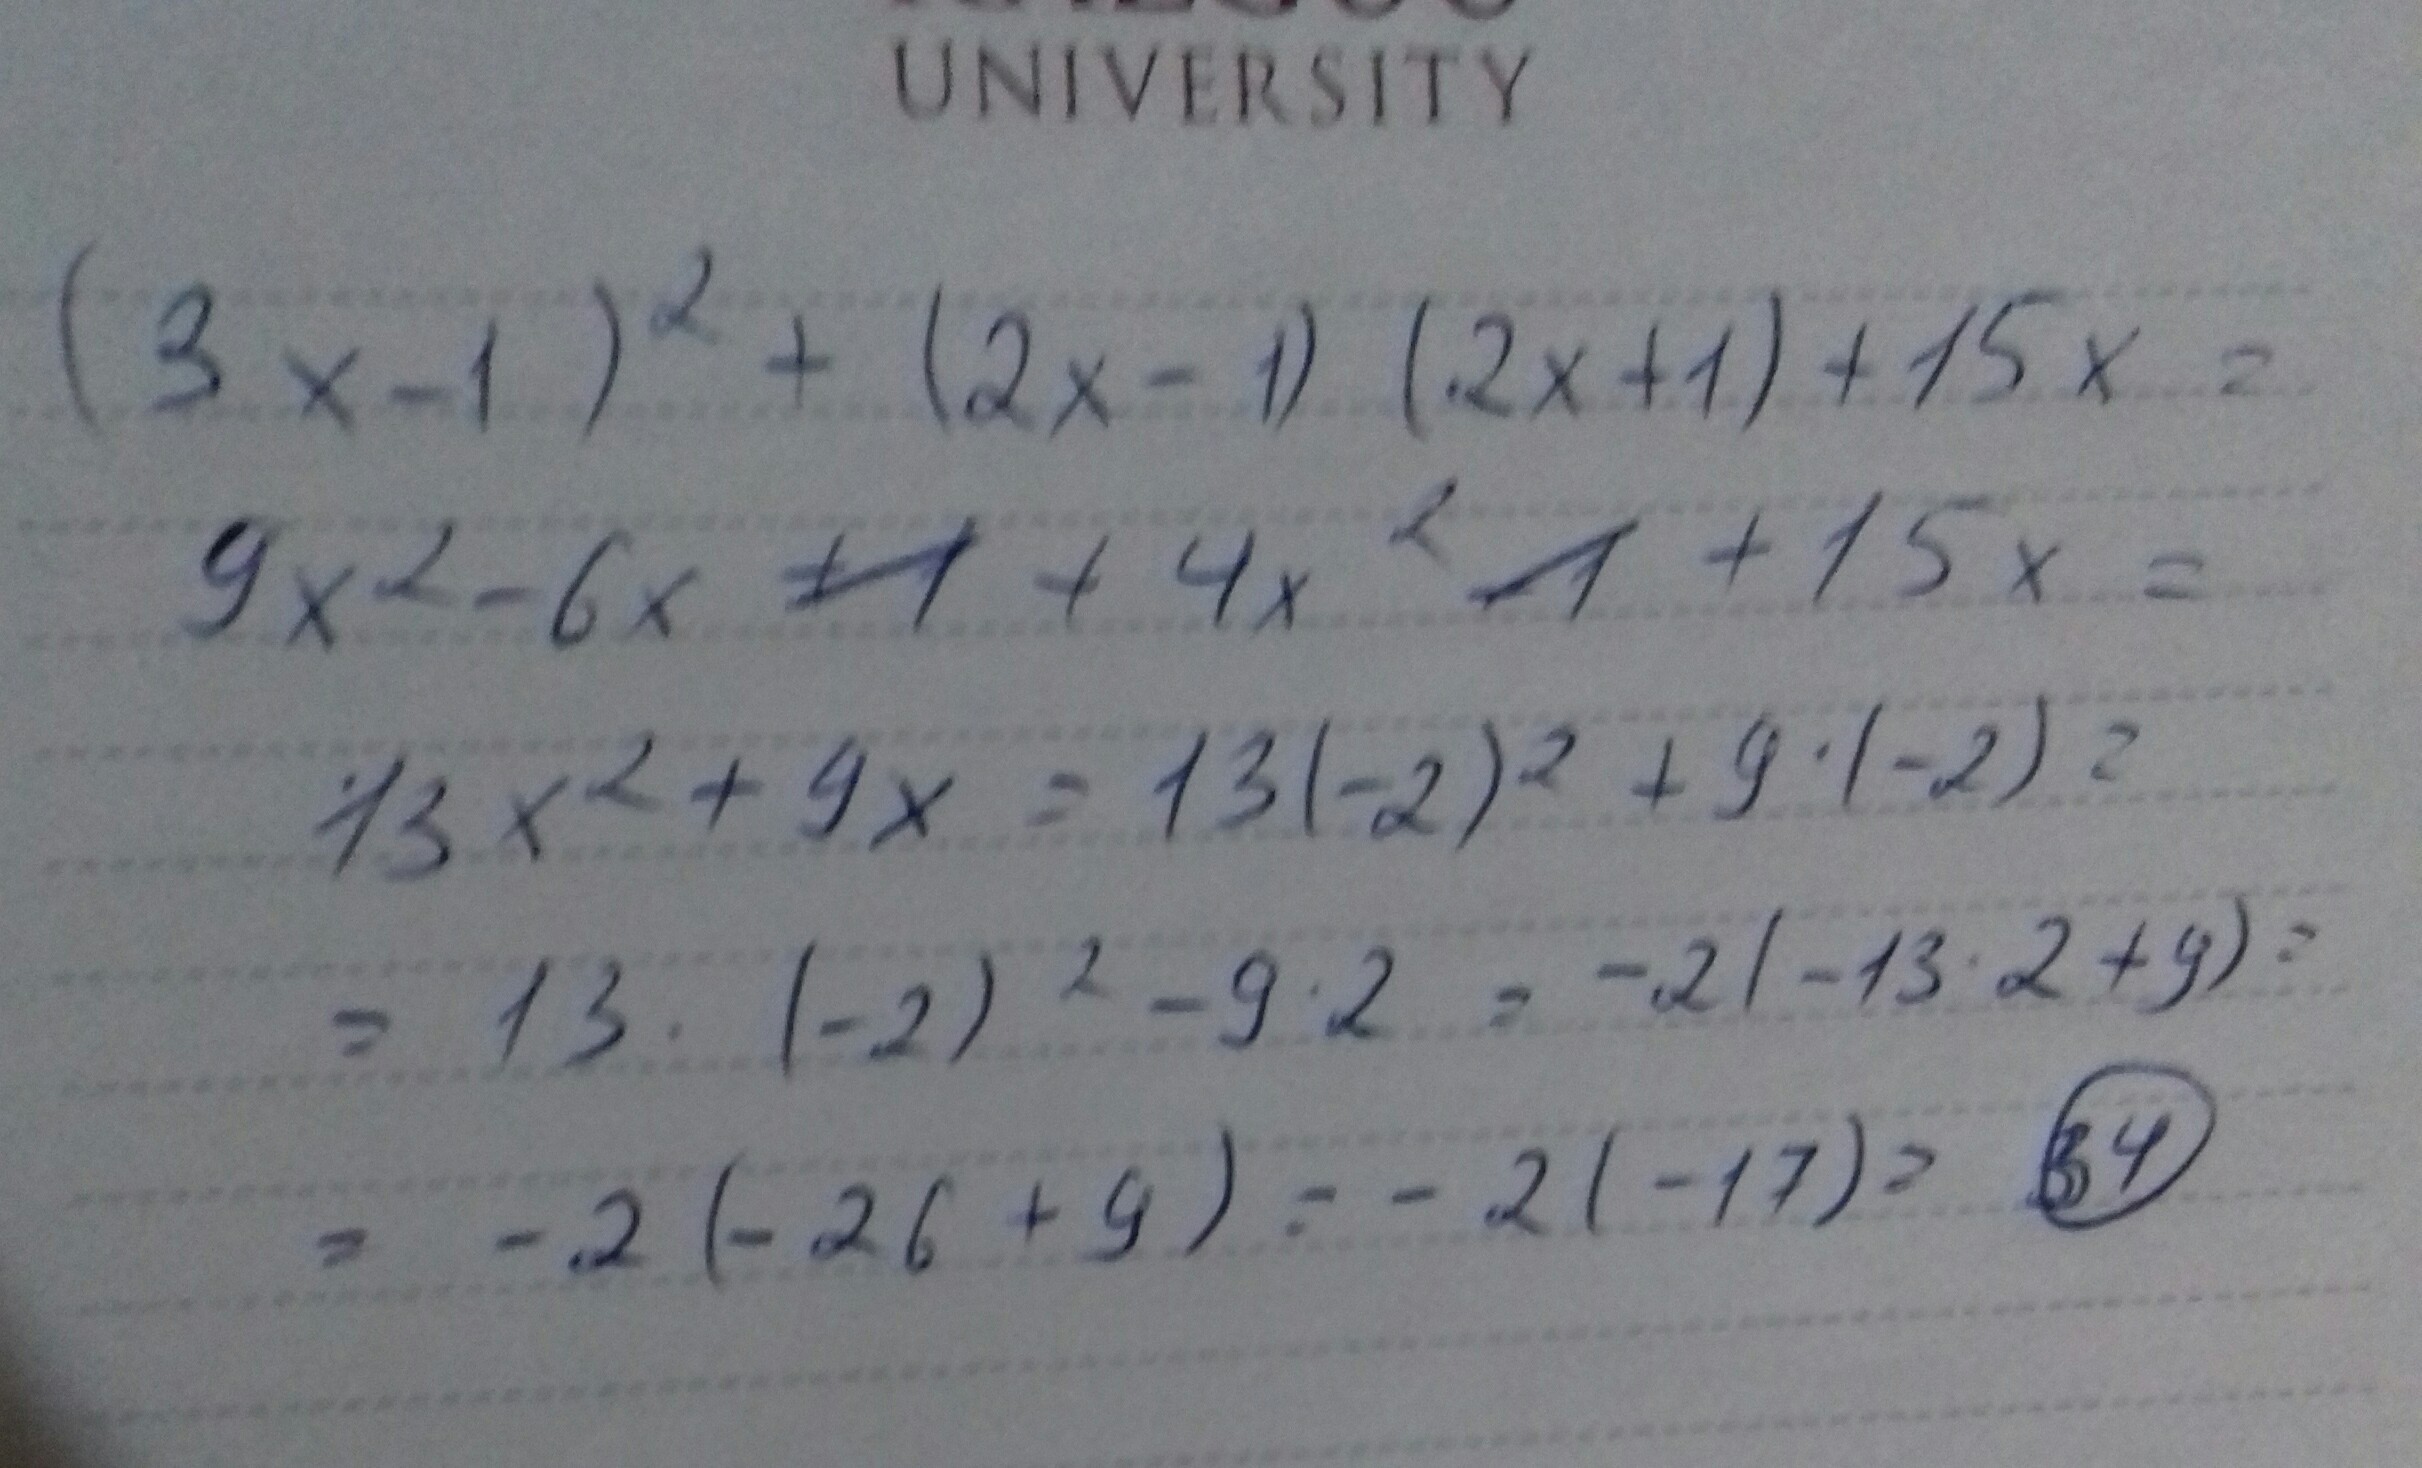 UNIVERSITY
(3x-1)² + (2x-1) (2x+1) + 15x =
9x² - 6x + 1 + 4x² - 1 + 15x =
13x² + 9x = 13(-2)² + 9·(-2) =
= 13 · (-2)² - 9·2 = -2(-13·2+9) =
= -2(-26+9) = -2(-17) = 34